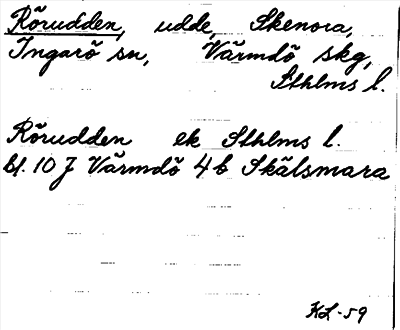 Rörudden, udde, Skenora,
Ingarö sn, Värmdö skg,
Sthlms l.
Rörudden ek Sthlms l.
bl. 10 J Värmdö 4 b Skälsmara
KL-59